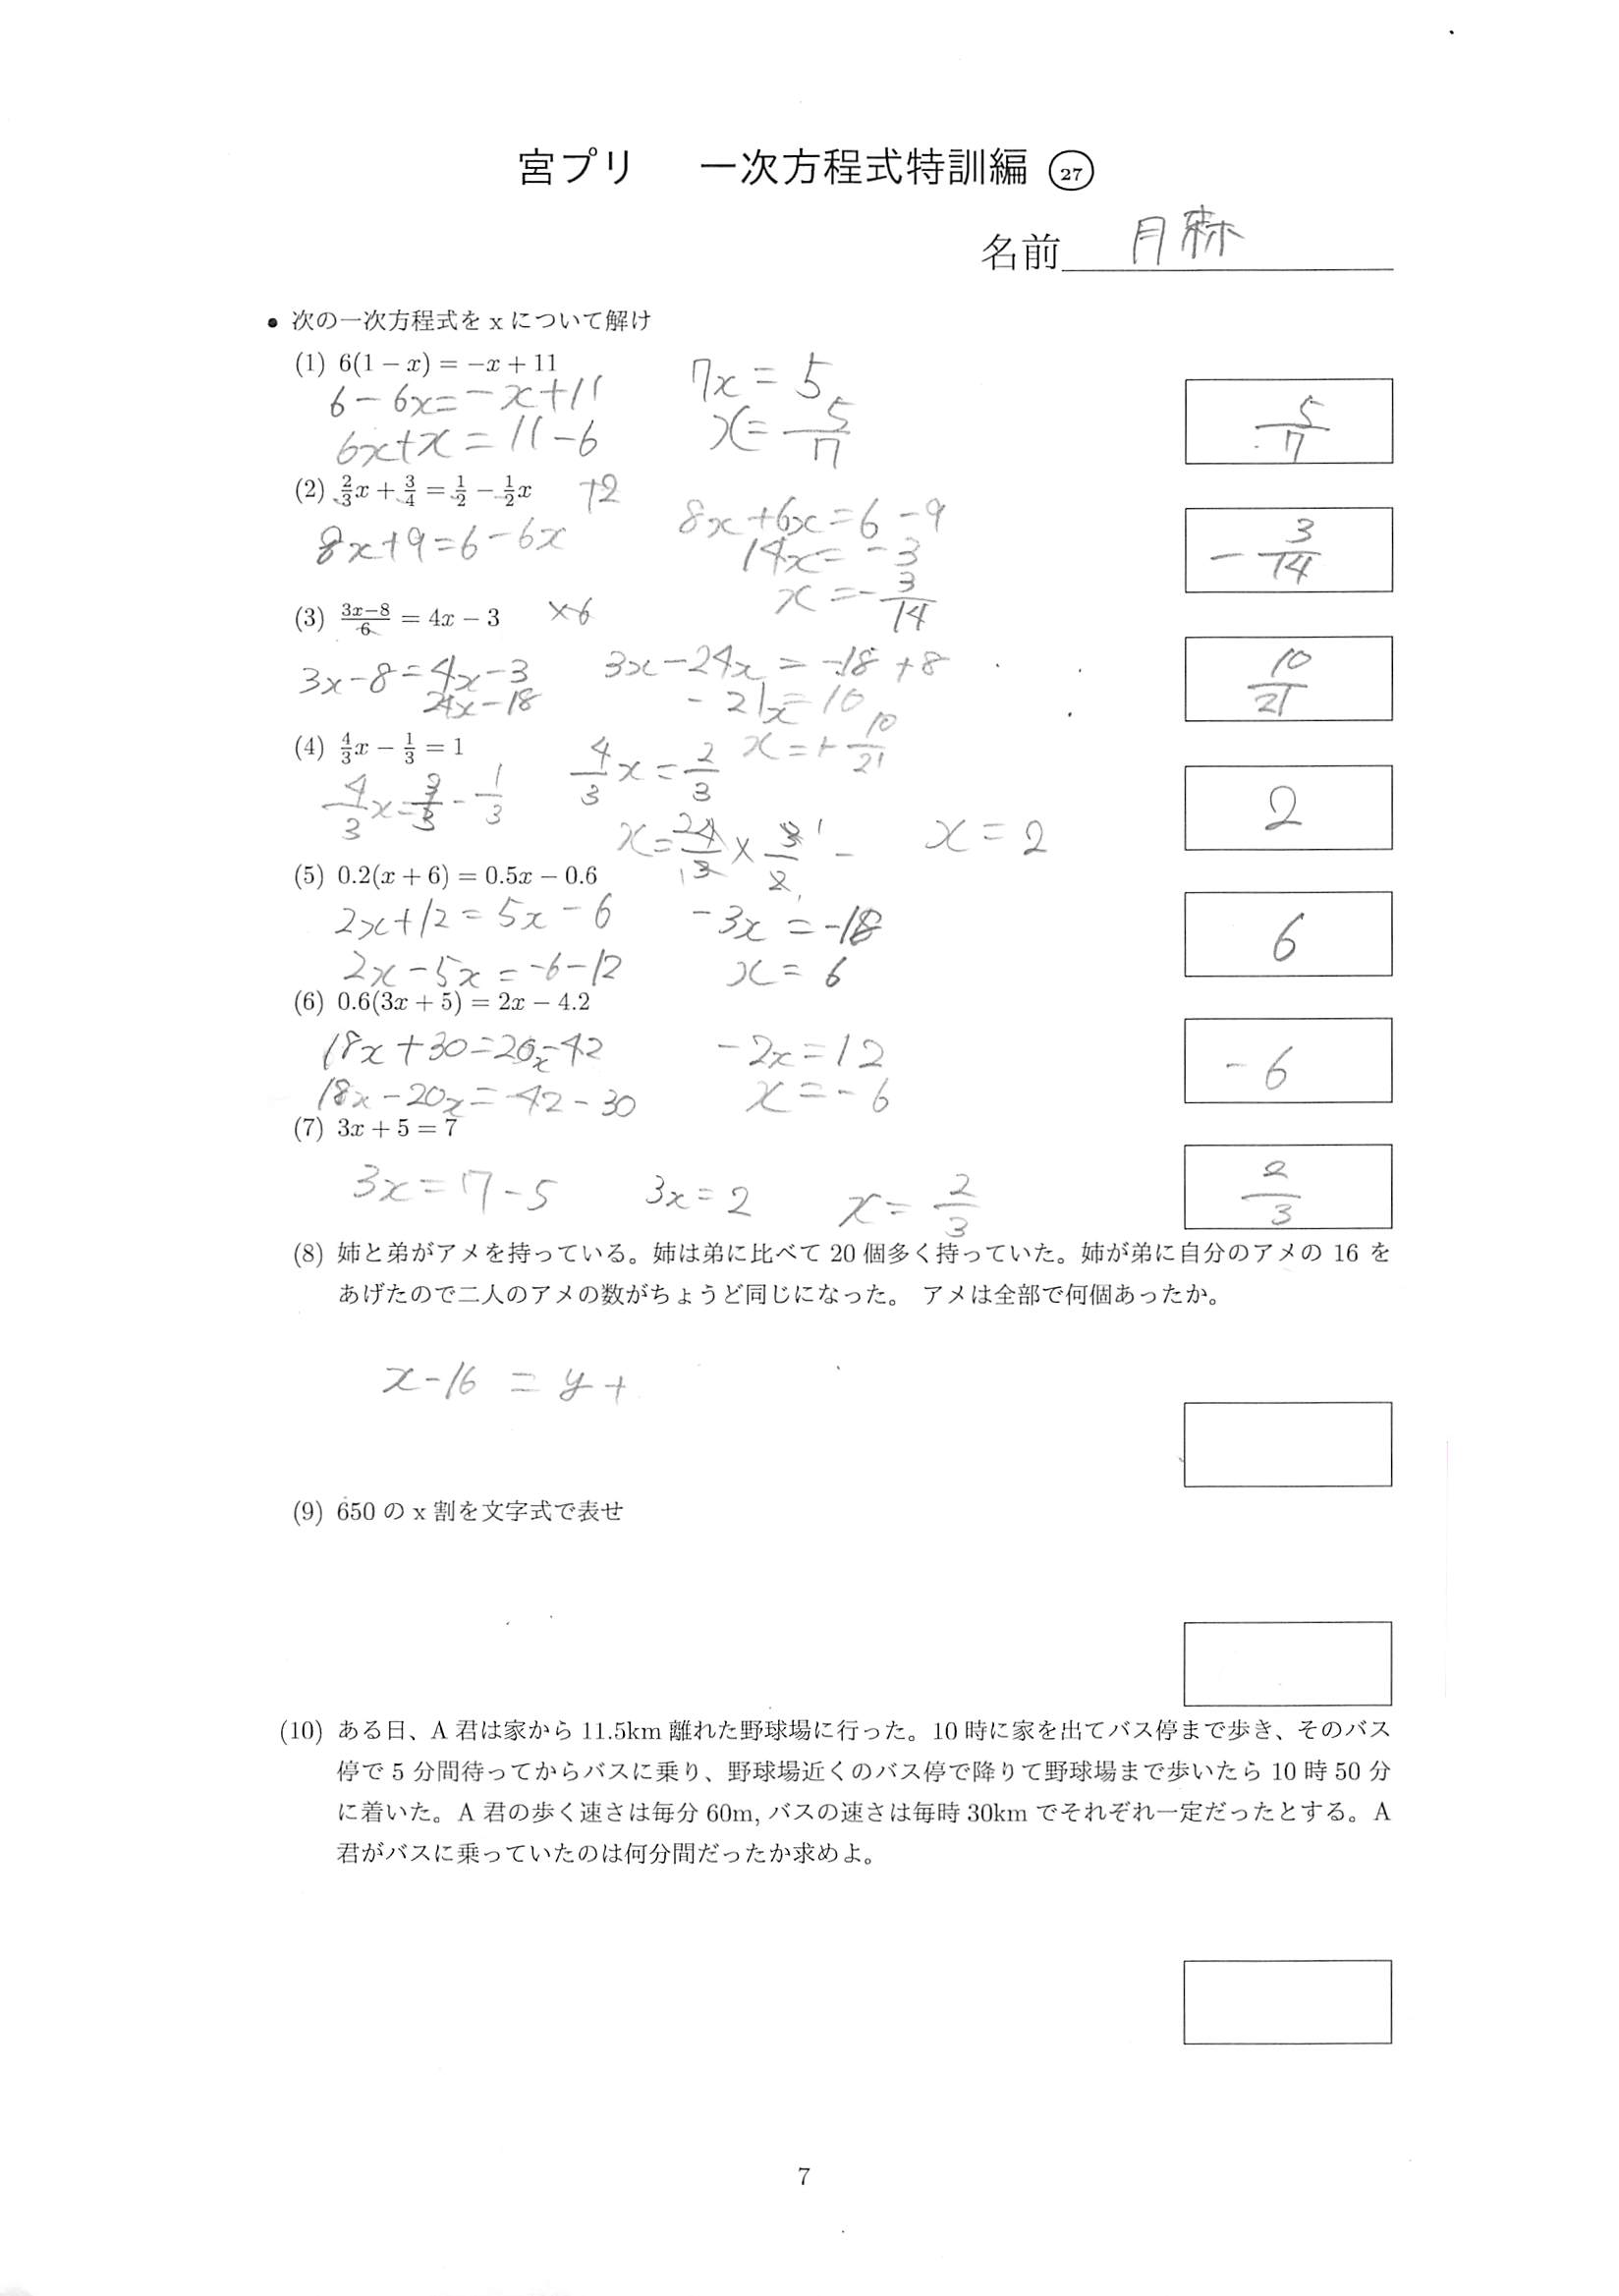 宮プリ 一次方程式特訓編 ㉗
名前
● 次の一次方程式を x について解け
(1) 6(1 − x) = −x + 11
6 − 6x = −x + 11
6x + x = 11 − 6
7x = 5
x = 5/7
5/7
(2) 2/3x + 3/4 = 1/2 − 1/2x
8x + 9 = 6 − 6x
8x + 6x = 6 − 9
14x = −3
x = −3/14
−3/14
(3) 3x−8/6 = 4x − 3 ×6
3x − 8 = 4x − 3
24x − 18
3x − 24x = −18 + 8
−21x = 10
x = + 10/21
10/21
(4) 4/3x − 1/3 = 1
4/3x = 3/3 − 1/3
4/3x = 2/3
x = 2
2
(5) 0.2(x + 6) = 0.5x − 0.6
2x + 12 = 5x − 6
2x − 5x = −6 − 12
−3x = −18
x = 6
6
(6) 0.6(3x + 5) = 2x − 4.2
18x + 30 = 20x − 42
18x − 20x = −42 − 30
−2x = 12
x = −6
−6
(7) 3x + 5 = 7
3x = 7 − 5
3x = 2
x = 2/3
2/3
(8) 姉と弟がアメを持っている。姉は弟に比べて 20 個多く持っていた。姉が弟に自分のアメの 16 を
あげたので二人のアメの数がちょうど同じになった。 アメは全部で何個あったか。
x − 16 = y +
(9) 650 の x 割を文字式で表せ
(10) ある日、A 君は家から 11.5km 離れた野球場に行った。10 時に家を出てバス停まで歩き、そのバス
停で 5 分間待ってからバスに乗り、野球場近くのバス停で降りて野球場まで歩いたら 10 時 50 分
に着いた。A 君の歩く速さは毎分 60m, バスの速さは毎時 30km でそれぞれ一定だったとする。A
君がバスに乗っていたのは何分間だったか求めよ。
7